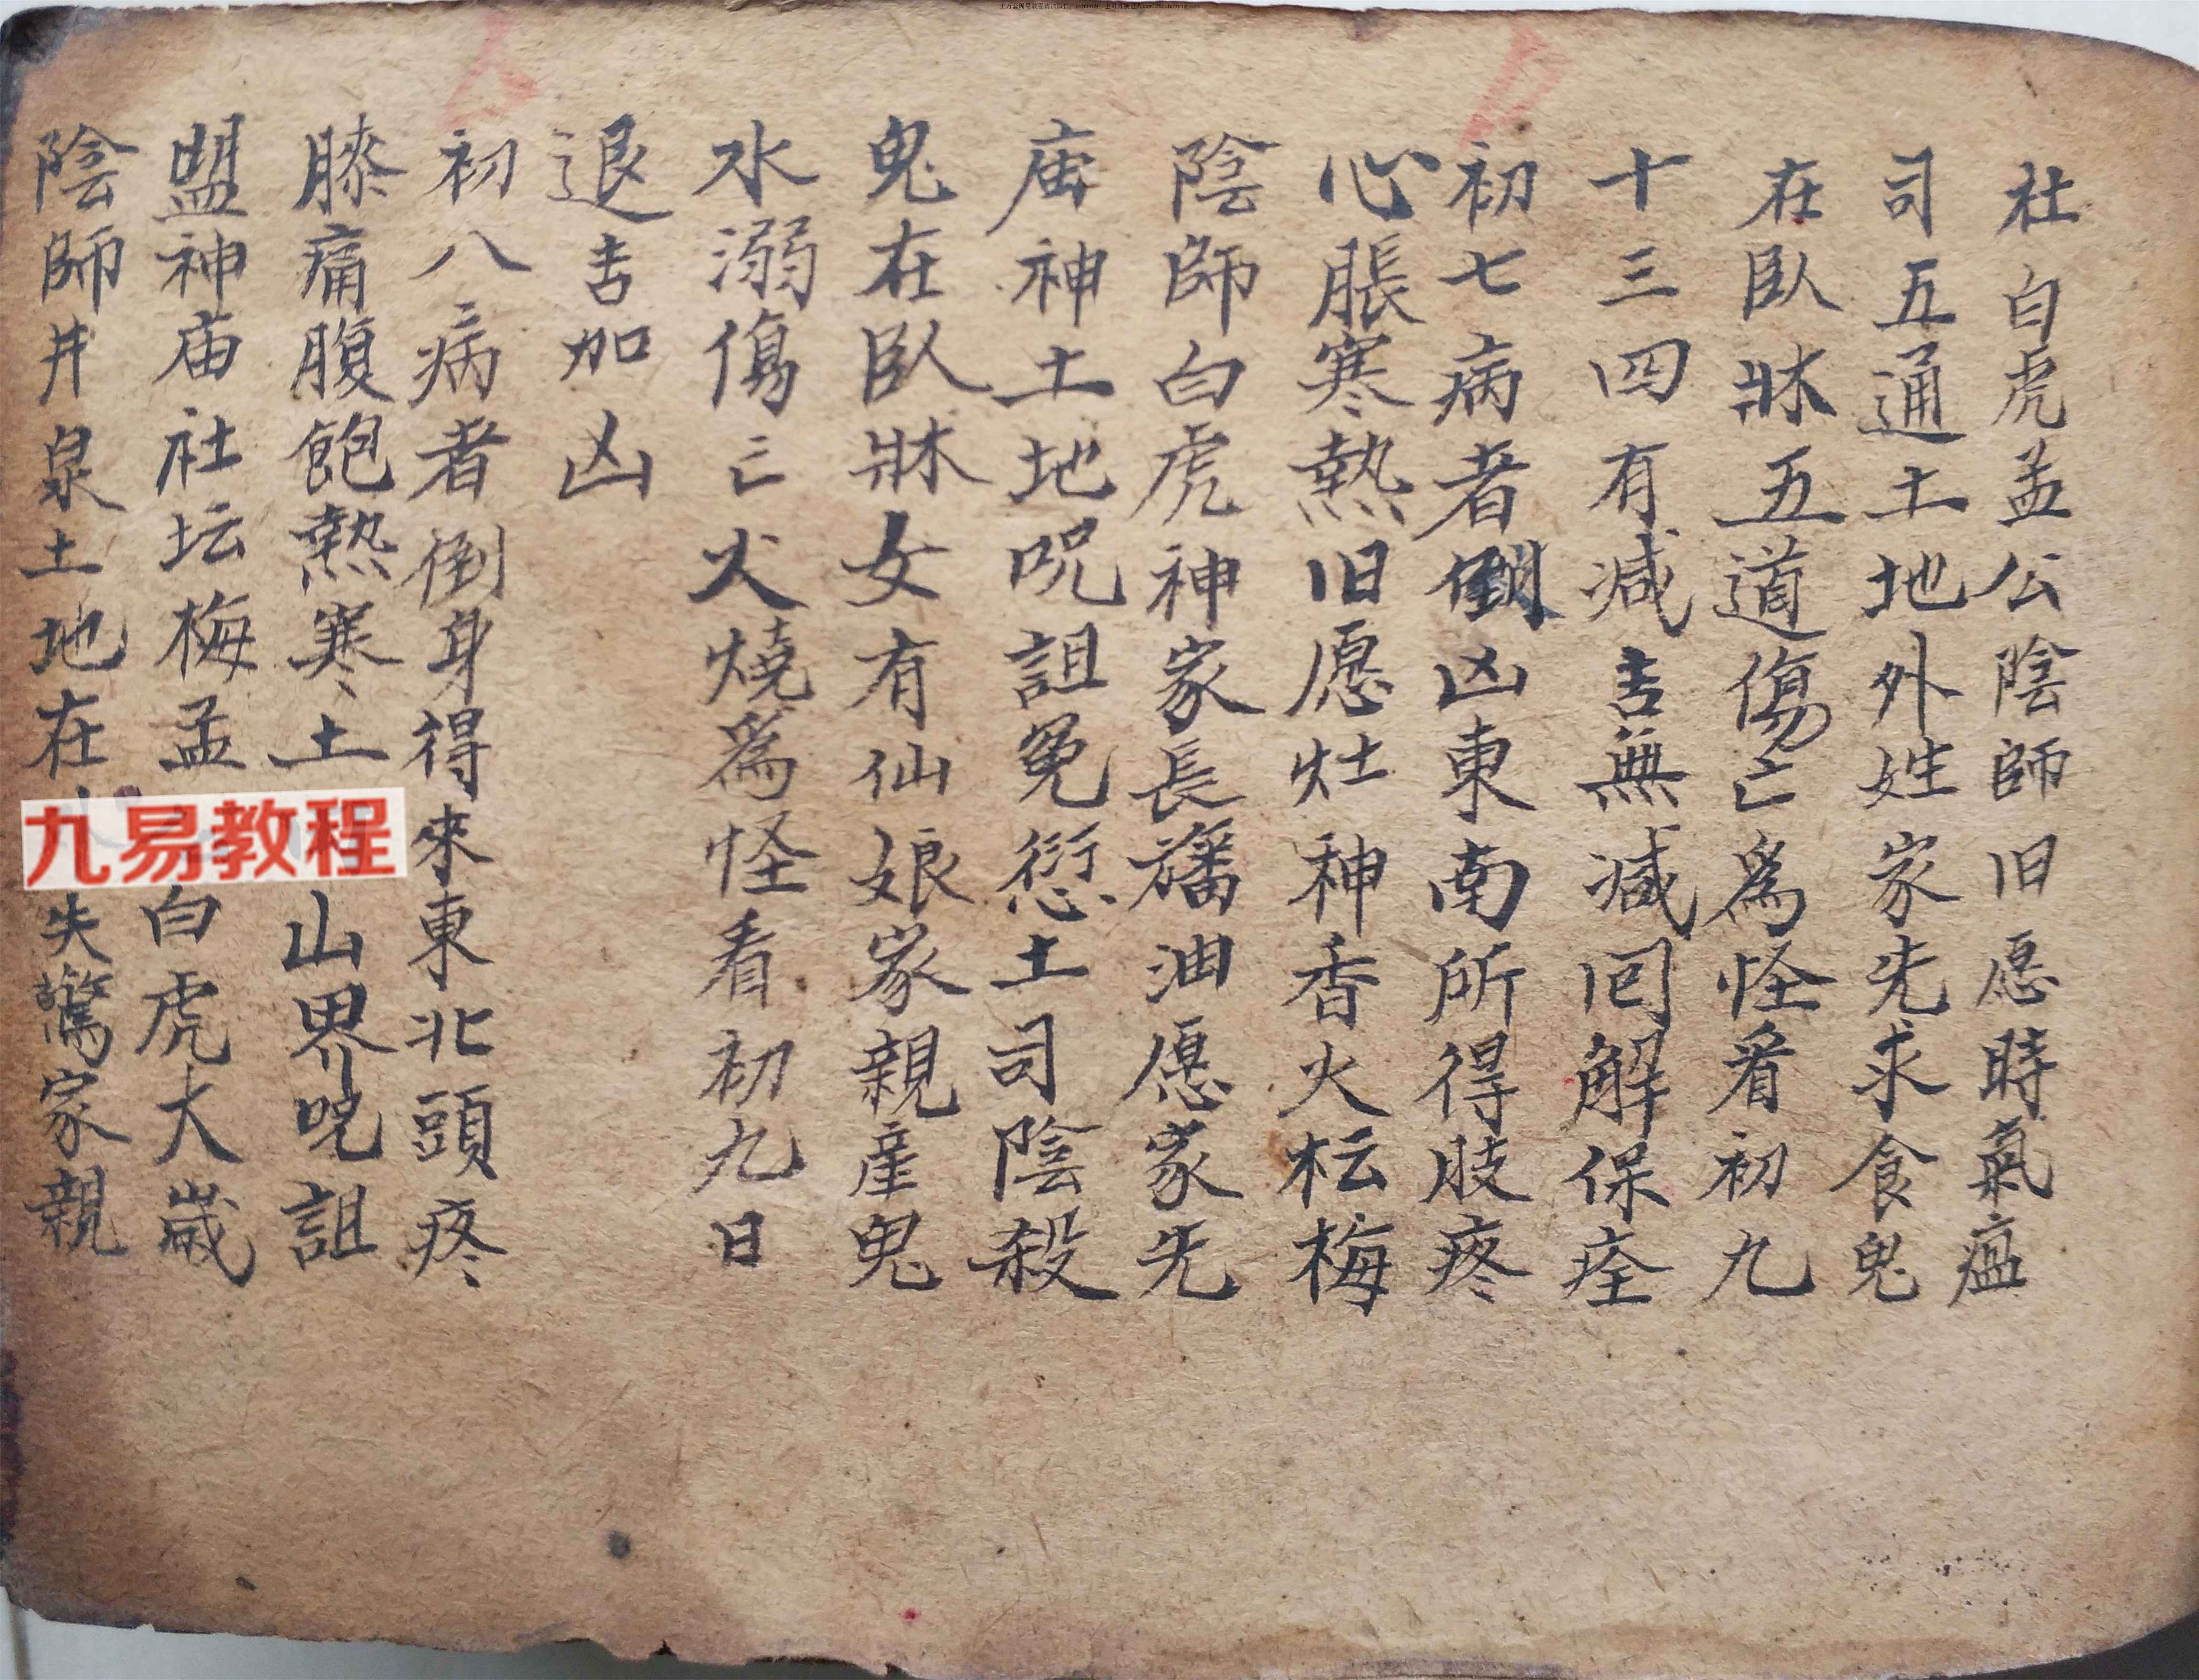 社白虎孟公陰師旧愿時氣瘟
司五通土地外姓家先求食鬼
在臥牀五道傷亡為怪看初九
十三四有減吉無減囘解保痊
初七病者倒凶東南所得肢疼
心脹寒熱旧愿灶神香火枟梅
陰師白虎神家長旛油愿家先
庙神土地呪詛冤愆土司陰殺
鬼在臥牀女有仙娘家親産鬼
水溺傷亡火燒為怪看初九日
退吉加凶
初八病者倒身得來東北頭疼
膝痛腹飽熱寒土山界呪詛
盟神庙社坛梅孟白虎大歲
陰師井泉土地在失驚家親
九易教程